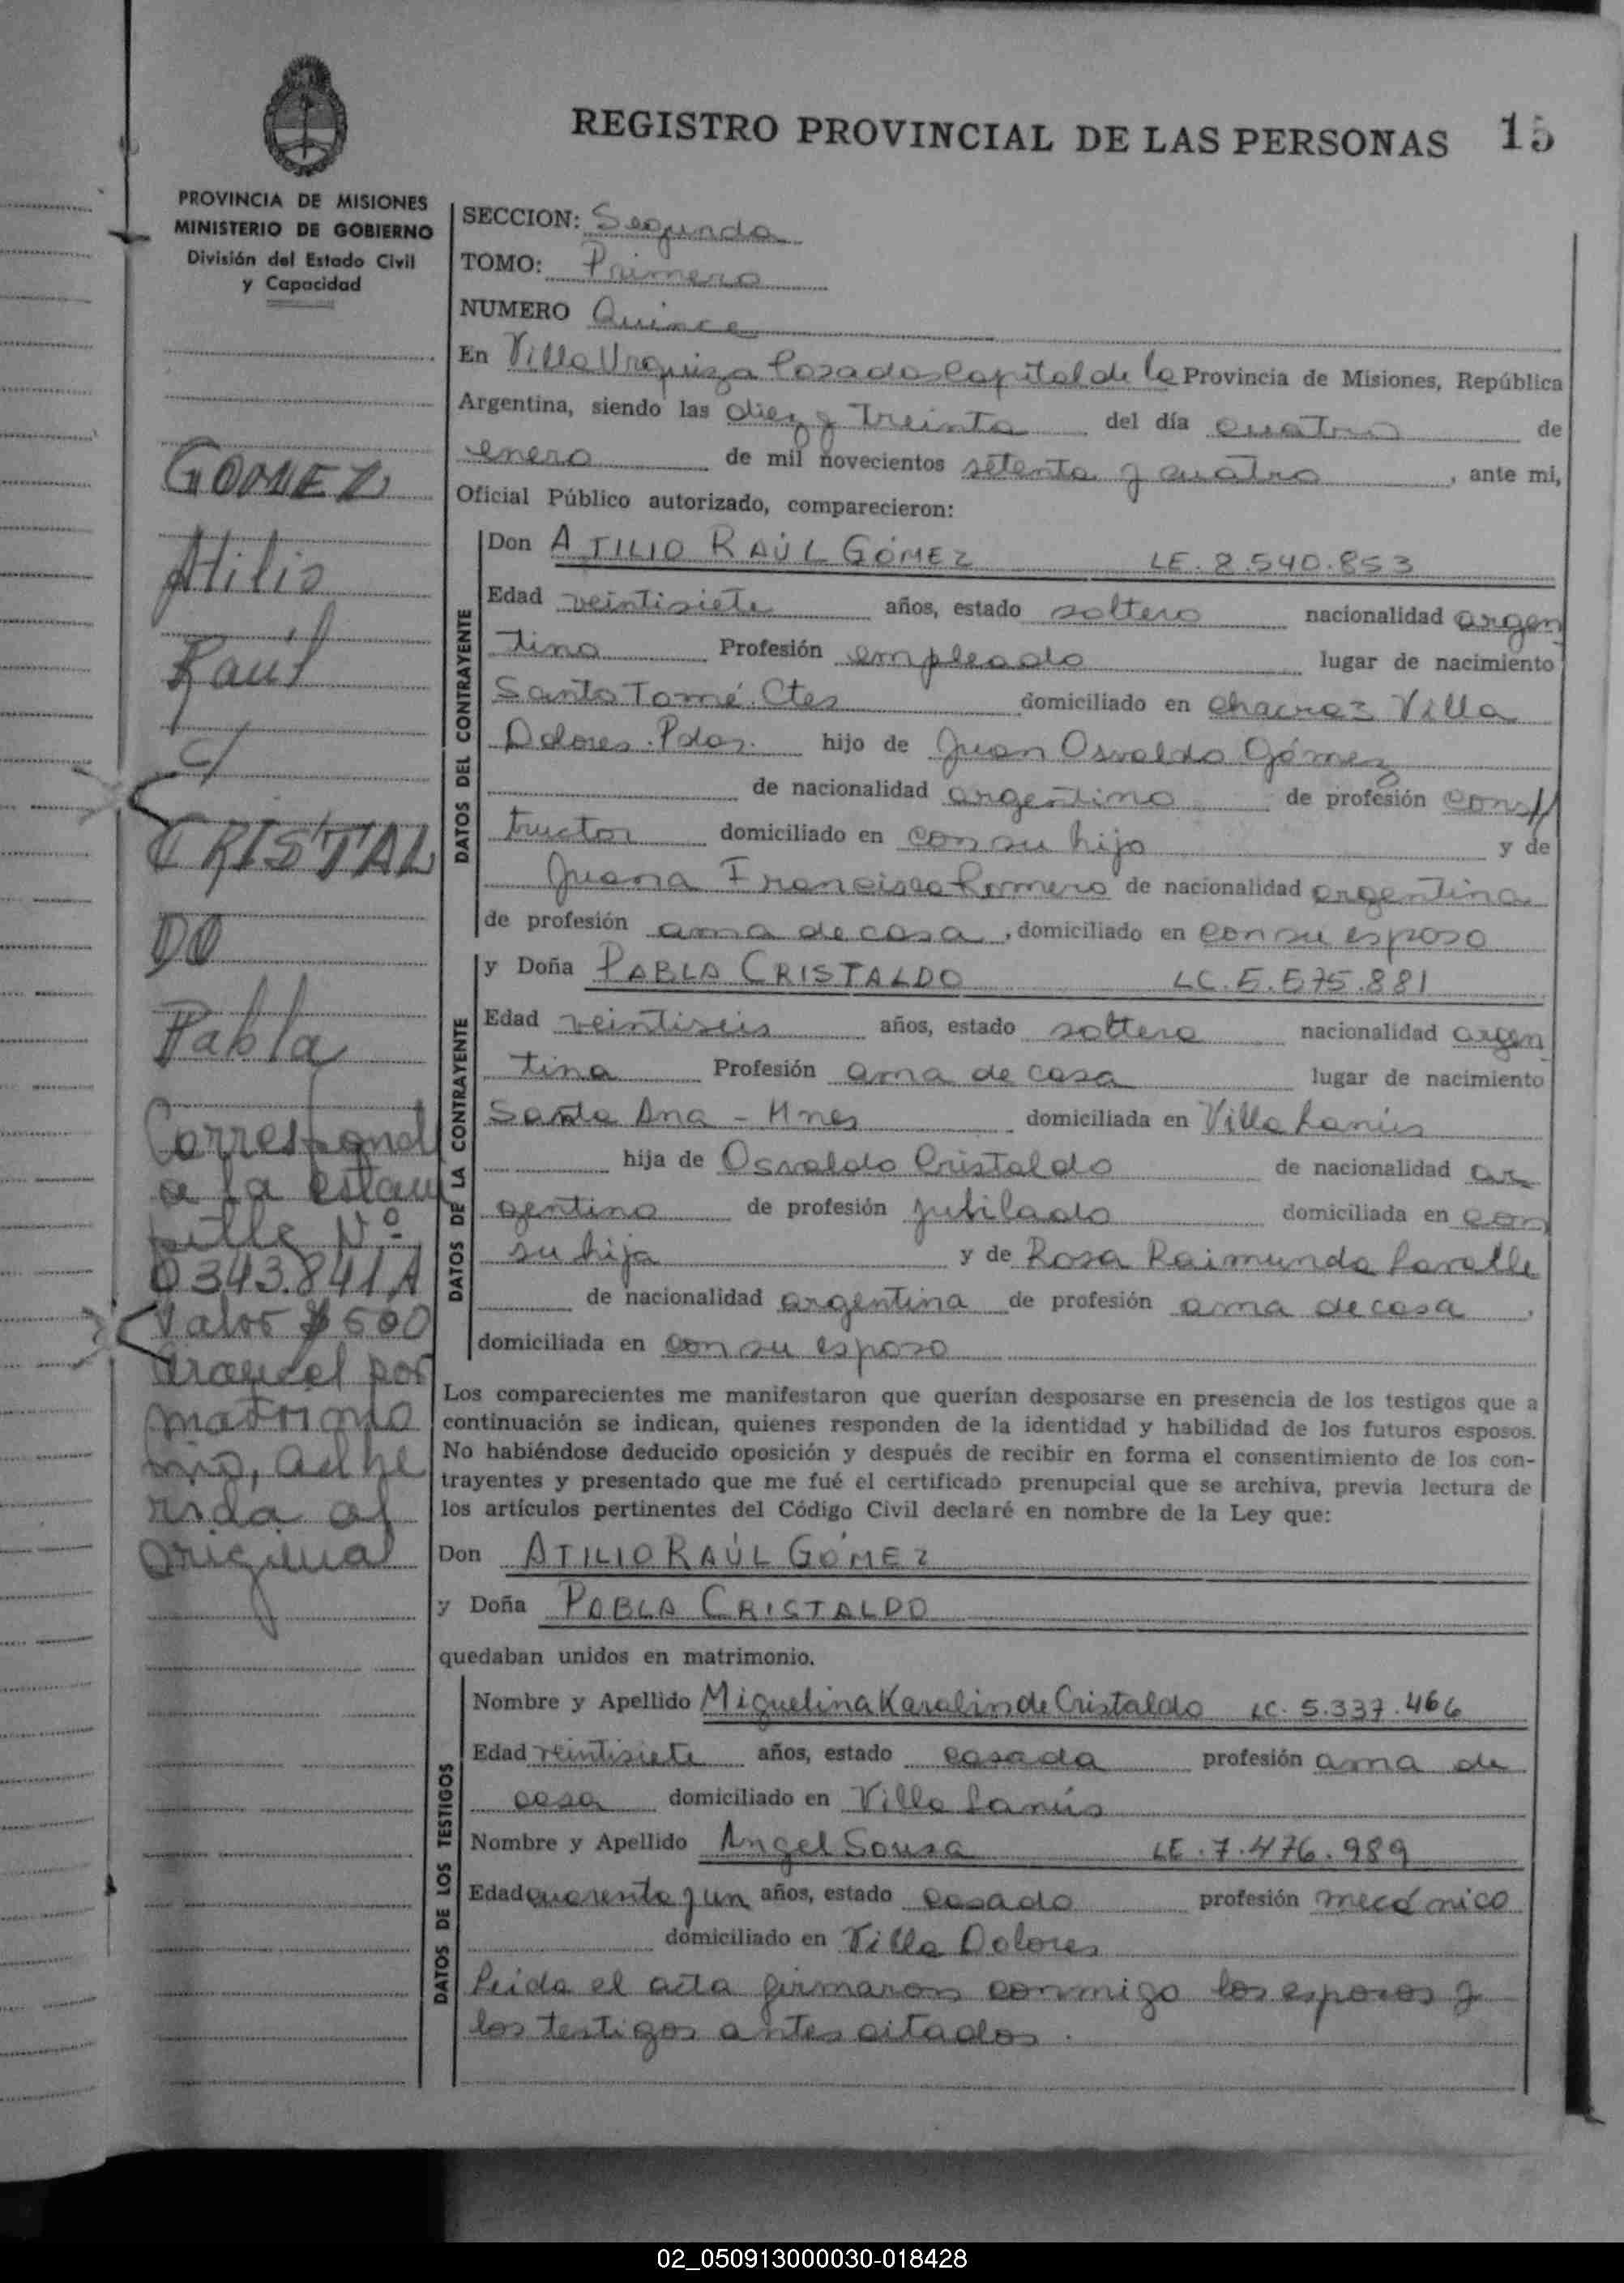 REGISTRO PROVINCIAL DE LAS PERSONAS 15
PROVINCIA DE MISIONES
MINISTERIO DE GOBIERNO
División del Estado Civil
y Capacidad
GOMEZ
Atilio
Raúl
c/
CRISTAL
DO
Pabla
Correspond
a la estam
pilla Nº
0343.841 A
Valor $ 500
arancel por
matrimo
nio, adhe
rida al
original
SECCION: Segunda
TOMO: Primero
NUMERO Quince
En Villa Urquiza Posadas Capital de la Provincia de Misiones, República
Argentina, siendo las diez y treinta del día cuatro de
enero de mil novecientos setenta y cuatro, ante mi,
Oficial Público autorizado, comparecieron:
DATOS DEL CONTRAYENTE
Don ATILIO RAÚL GÓMEZ LE. 8.540.853
Edad veintisiete años, estado soltero nacionalidad argen
tino Profesión empleado lugar de nacimiento
Santo Tomé. Ctes domiciliado en Villa
Dolores. Pdas. hijo de Juan Osvaldo Gómez
de nacionalidad argentino de profesión cons//
tructor domiciliado en con su hijo y de
Juana Francisca Romero de nacionalidad argentina
de profesión ama de casa, domiciliado en con su esposo
DATOS DE LA CONTRAYENTE
y Doña PABLA CRISTALDO LC. 5.575.881
Edad veintiseis años, estado soltera nacionalidad argen
tina Profesión ama de casa lugar de nacimiento
Santa Ana - Mnes domiciliada en Villa Lanús
hija de Osvaldo Cristaldo de nacionalidad ar
gentino de profesión jubilado domiciliada en con
su hija y de Rosa Raimunda Lavalle
de nacionalidad argentina de profesión ama de casa,
domiciliada en con su esposo
Los comparecientes me manifestaron que querían desposarse en presencia de los testigos que a
continuación se indican, quienes responden de la identidad y habilidad de los futuros esposos.
No habiéndose deducido oposición y después de recibir en forma el consentimiento de los con-
trayentes y presentado que me fué el certificado prenupcial que se archiva, previa lectura de
los artículos pertinentes del Código Civil declaré en nombre de la Ley que:
Don ATILIO RAÚL GÓMEZ
y Doña PABLA CRISTALDO
quedaban unidos en matrimonio.
DATOS DE LOS TESTIGOS
Nombre y Apellido Miguelina Karalin de Cristaldo LC. 5.337.466
Edad veintisiete años, estado casada profesión ama de
casa domiciliado en Villa Lanús
Nombre y Apellido Angel Sousa LE. 7.476.989
Edad cuarenta y un años, estado casado profesión mecánico
domiciliado en Villa Dolores
Leida el acta firmaron conmigo los esposos y
los testigos antes citados.
02_050913000030-018428